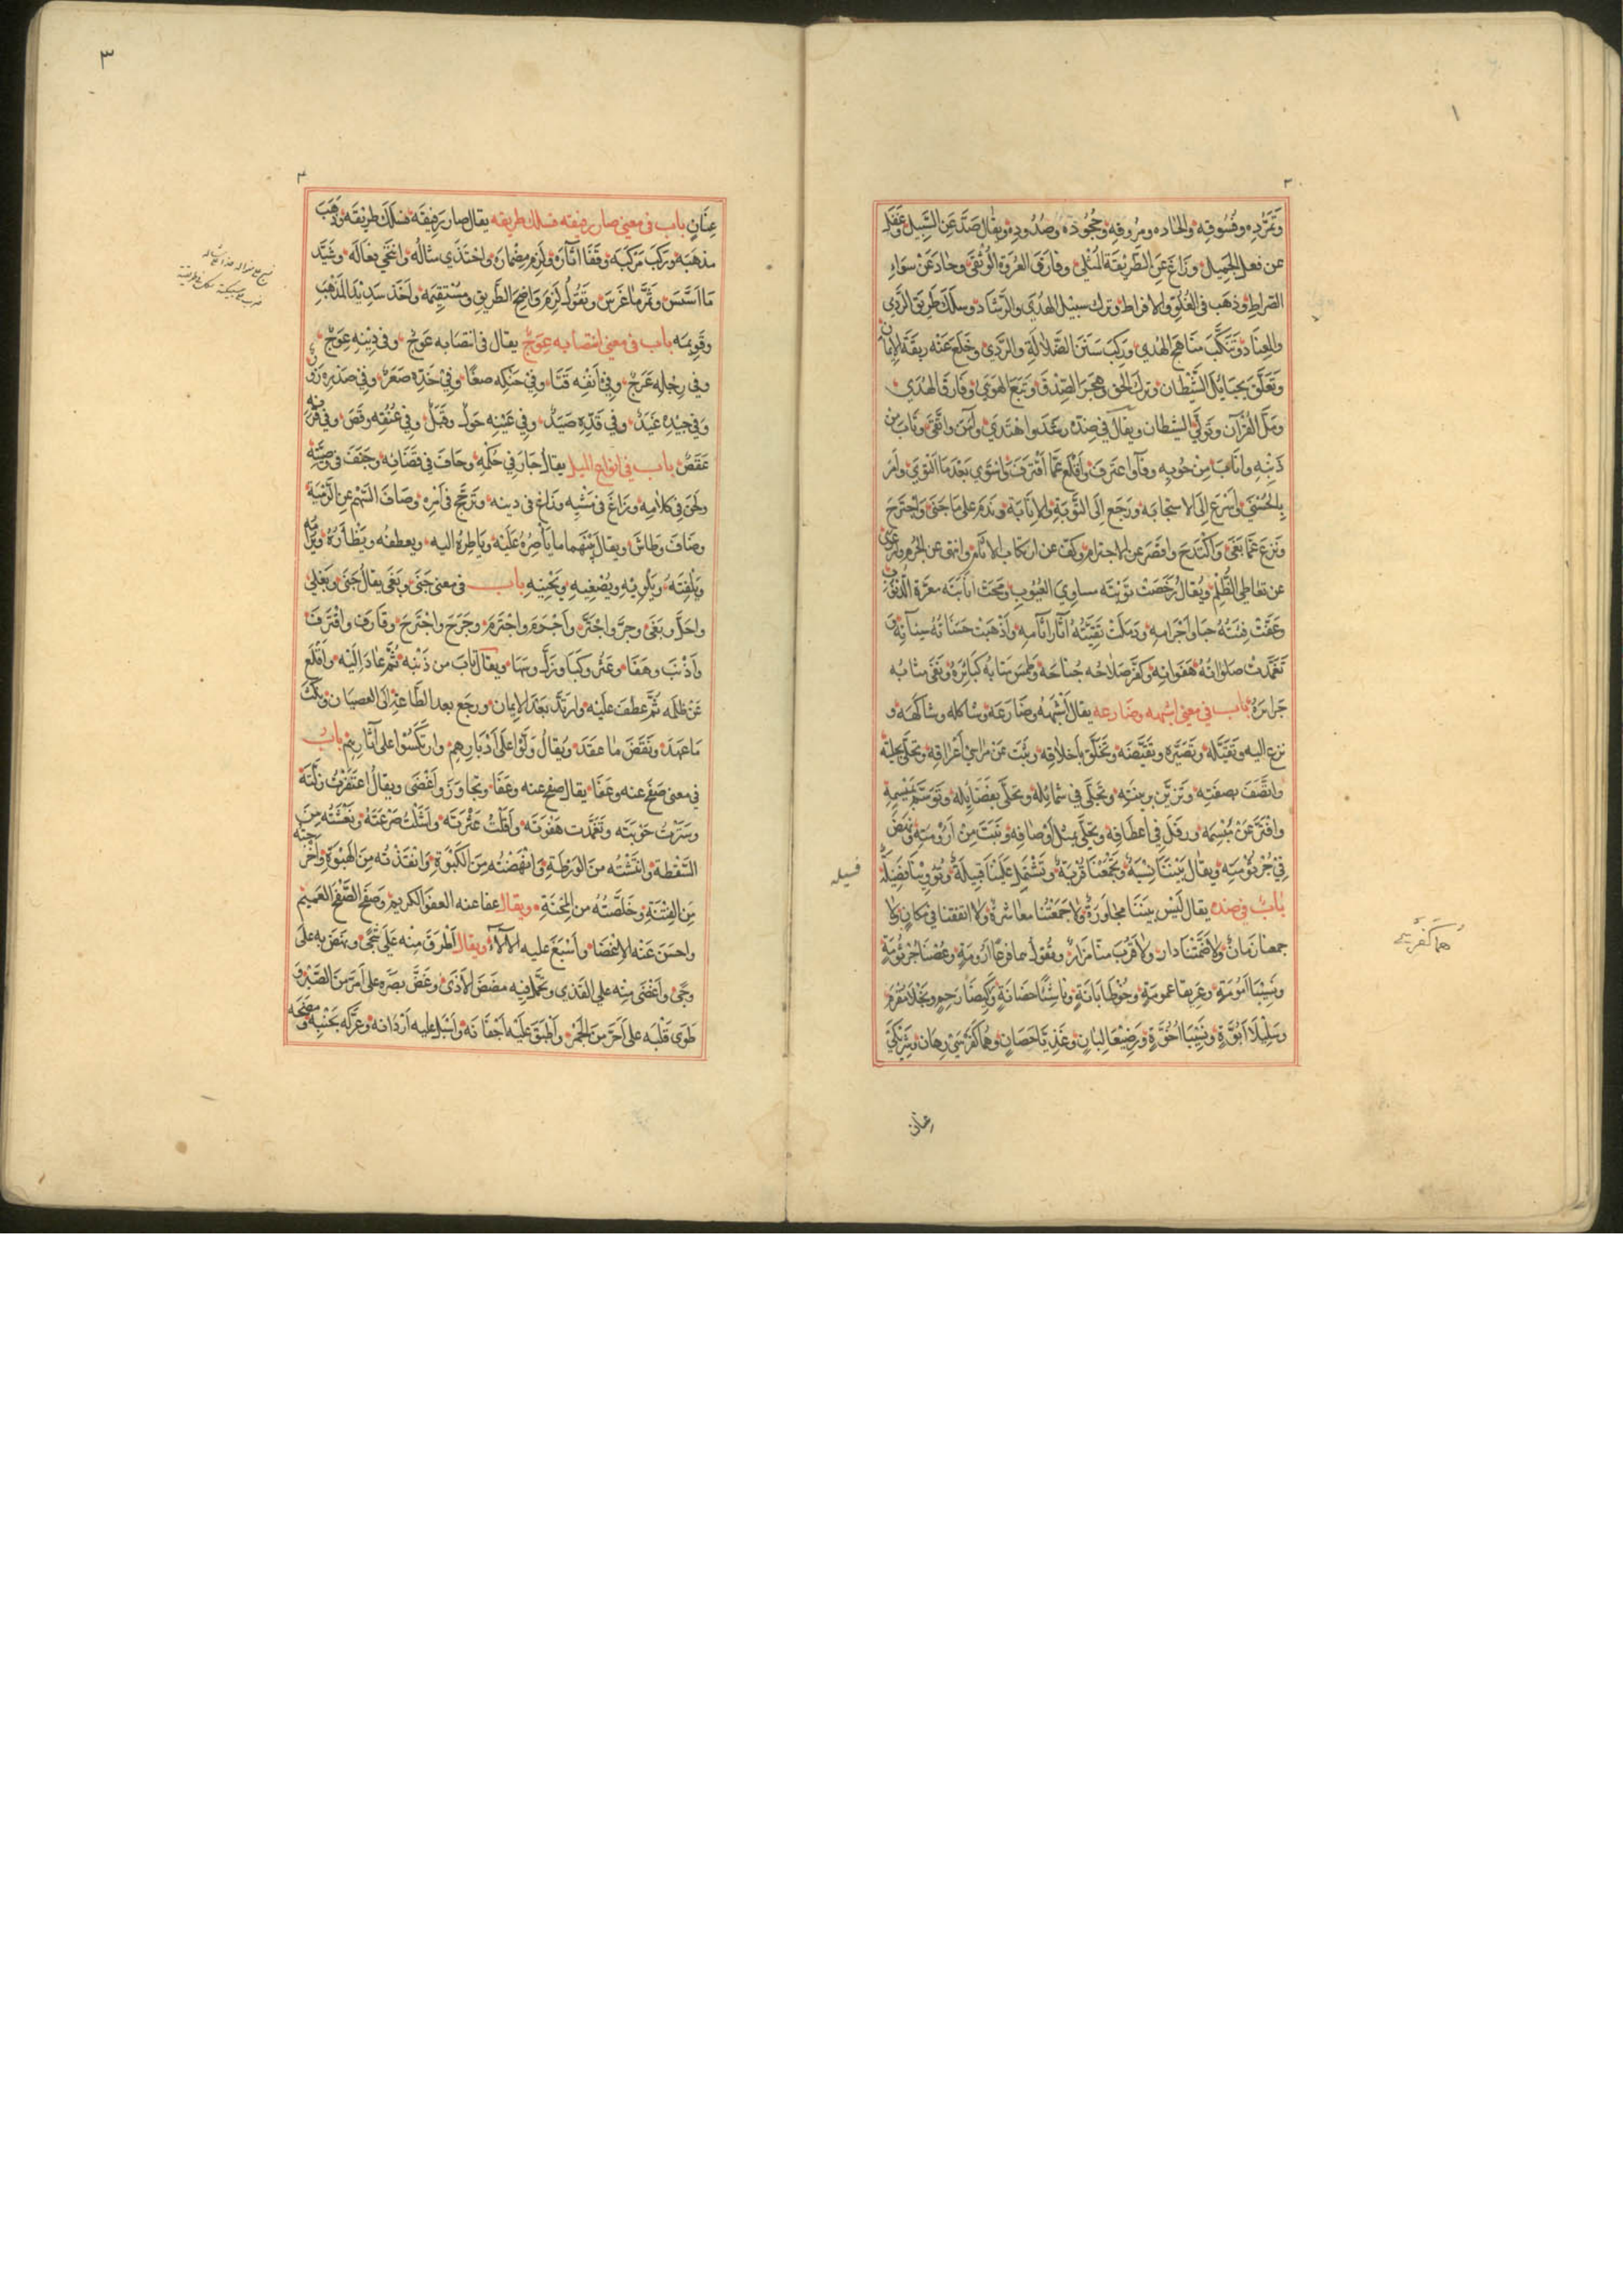 ١
٣
وَتَمَرُّدِه وفُسُوقِه والحاده ومُرُوقِه وجُحُودَه وصُدُودِه ويُقال صَدَّ عَنِ السَّبِيل وعَدَلَ
عن فعل الجَمِيل وزَاغَ عَنِ الطَّرِيْقَة المُثْلى وفارَقَ العُرْوَة الوُثْقى وحادَ عَنْ سَواءِ
الصراطِ وذهَب في الغُلُوِّ والافراط وترك سبيْل الهُدَي والرَّشادِ وسلَكَ طَرِيقَ الرَّدي
والعِنَادِ وتَنَكَّبَ مَنَاهِجَ الهُدي ورَكِبَ سَنَنَ الضَّلالَةِ والرَّدي وخَلَعَ عَنْه رِبقَةَ الإيمان
وتَعَلَّقَ بِحَبايلِ الشَّيْطان وتَرك الحق وهَجَرَ الصِّدْقَ وتَبَعَ الهَوَي وفَارَقَ الهُدَي
ومَلَّ القُرْآن وتَولَّي الشيطان ويقال في ضِدّه رَشَدَ واهْتَدَي وآمَنَ واتَّقَي وتابَ من
ذَنْبِه وانَابَ مِنْ حُوبِه وفآ واعتَرفَ وأقْلَعَ عَمَّا اقْتَرفَ وانتَوَي بَعْدَ مَا الْتَوَي وأمَرَ
بالحُسْنَي وأسْرَعَ إلَى الاستجابَه ورَجَع إلَى التَّوبَةِ والإنَابَة ونَدَم عَلى مَا جَنَي واجْتَرَحَ
ونَزعَ عَمَّا بَغَي وَاكْتَدَحَ واقصَرَ عن الاجترام وكفَّ عن ارتكاب الآثام وانتهى عن الجُرم وارعَوَي
عن تعاطي الظُّلم ويُقالُ رَحَضَتْ تَوْبَتُه مساوِي العُيُوبِ ومَحَتْ انَابَتُه مَعَرَّةَ الذُّنُوبِ
وعَفَّتْ فِئَتُهُ اجْرَامِه ودَمَلَتْ تَقِيَّتُهُ آثَارَ آثَامِه وأذْهَبَتْ حَسَنَاتُهُ سيآتِه
تَغَمَّدَتْ صلواتُهُ هَفَواتِه وكفَّر صَلاحُه جُناحَه وطَمَسَ مَتَابُه كَبَائِرَهُ ونَفَى مثابُه
جَرائِرَهُ باب في معني اشبهه وضارعه يقال أشْبَهَهُ وضَارَعَهُ وشاكله وشاكهَه و
نزع اليه وتَقَيَّلَه وتَصَيَّرَه وتَقَيَّضَه وتَخَلَّق بأخلاقِه وتحلّى بحليته
واتَّصَفَ بصفَتِه وتَزَيَّن بزينتِه وتجَلَّي في شمائِله وتحلّى بفضَايلِه وتَوسَّم بمِيْسِمِه
وافتَرَّ عَنْ مَبْسِمِه ورفَلَ في أعطَافِه وتحلّي بمثل أوصَافِه ونَبَتَ مِنْ أرُوْمَتِه
فِي جُرْثُوْمَتِه ويقال بَيْنَنَا نِسْبَةٌ وتَجْمَعُنَا قُرْبَةٌ وتَشْتَمِل عَلَيْنَا قَبِيلَةٌ وتُؤْوِيْنَا فَصِيْلَةٌ
بابٌ في ضده يقال لَيْس بيننَا مجاوَرَةٌ ولا جَمَعَتْنا معاشرةٌ ولا اتفقنا في مكانٍ ولا
جمعنا زَمانٌ ولا ضَمَّتْنَا دار ولا قَرُبَ منّا مَزارٌ ونقولُ هما فرعَا أرُومَةٍ وغُصْنَا جُرْثُومَةٍ
وسَلِيْلا أبُوَّةٍ ونَسِيْبَا أخُوَّةٍ ورَضِيْعَا لِبانٍ وهُمَا كفَرَسَيْ رِهَانٍ وشَرِيْكَيْ
فسيله
هما كفرسَي
عنان
٣
٣
عِنَانٍ باب في معني صار رفيقه فسلك طريقه يقال صار رَفِيقَه فسَلَكَ طرِيْقَه وذهَبَ
مذهَبَه وركَبَ مَرْكَبَه وقَفَا آثَارَه ولَزِم مِضْمارَه واحْتَذَي مثَالَه وانتحَي فِعَالَه وشَيَّد
مَا أسَّسَ وثَمَّر ما غَرَسَ وتَقُوْلُ لَزِم واضِحَ الطَّرِيق ومُسْتَقِيمَه وأخَذَ سَدِيْدَ المَذْهَبِ
وقَوِيمَه باب في معني انتصابه عِوَجٌ يقال في انتصَابه عَوَجٌ وفي دِيْنِه عِوَجٌ
وفي رِجْلِه عَرَجٌ وفِيْ أنفِه قَنَا وفِيْ حَنَكِه ضغًا وفِيْ خَدِّه صَعَرٌ وفِيْ صَدْرِه زَوَرٌ
وفي جِيْدِه غَيَدٌ وفي قَدِّهِ صَيَدٌ وفي عَيْنِه حَولٌ وقَبَلٌ وفي عُنُقِه وقَصٌ وفي قَرْنِه
عَقَصٌ باب في انواع الميل يقال جَارَ فِي حُكْمِه وحَافَ في قَضَائِه وجَنَفَ في وصِيَّتِه
ولحَنَ فِي كلامِه وزَاغَ في مَشْيِه وزَاغَ في دينه وتَرجَّح في أمْرِه وصَافَ السَّهْم عن الرَّمْيَة
وضَافَ وطاش ويقال بَيْنَهما ما يأصِرُهُ عَلَيْه ويَاطِرُهُ اليه ويعطفُه ويَظْأرُهُ
ويَلْفِتُهُ ويَلْوِيْهِ ويُصْغِيهِ ويَحْنِيْهِ باب في معني جَنَي وبَغَى يقالُ جَنَى وبَغَي
واجْلَّ وبَغَى وجرَّ واجْتَرَّ وأجْرَمَ واجْتَرمَ وجَرَحَ واجْتَرحَ وقَارَفَ واقْتَرفَ
وأذْنَبَ وهَفَا وعَثَر وكَبَا وزَلَّ وسَهَا ويقال تابَ من ذَنْبِه ثُمَّ عادَ إلَيْه وأقْلَعَ
عَنْ ظلمِه ثُمَّ عَطفَ عَلَيْه وارتَدَّ بَعْدَ الإيمان ورجَع بعد الطَّاعةِ إلى العصيان ونَكَثَ
مَا عهَدَ ونَقَضَ ما عقَدَ ويُقالُ وَلَّوْا على أدْبارِهِم وارتَكَسُوْا على آثَارِهِم باب
في معنى صَفَحَ عنه وعَفَا يقال صفح عنه وعَفَا وتجاوَزَ وأغْضَى ويقالُ اغتَفَرْتُ زَلَّتَهُ
وسَتَرْتُ حَوْبَتَه وتَغَمَّدت هَفْوَتَه وأقَلْتُ عَثْرَتَه وانْتَشَلْتُ صَرْعَتَهُ ونَعَشْتُه مِنَ
السَّقْطَة وانتَشْتُه منَ الوَرْطَةِ وانْهَضْتُه مِنَ الكَبْوَةِ وانْقَذْتُه مِنَ الهَبْوَةِ وأخرَجتُه
مِنَ الفِتْنَةِ وخَلَّصْتُهُ من المِحْنَةِ ويقال عفا عنه العفوَ الكريمَ وصَفَحَ الصَّفْحَ العَمِيْمَ
واحسَن عَنْه الإغْضَا وأسْبَغَ عليه الآلآءَ ويقال أطرَقَ مِنْه عَلَى شَجًى ونهَضَ به علَى
وجًى وأغضَى مِنْه على القَذي وتحَمَّل فيه مضَضَ الأذَى وغَضَّ بصَرَه على أمَرَّ مِنَ الصَّبْرِ و
طَوَى قَلْبَه على أحَرَّ مِنَ الجَمْرِ وأطبَقَ عَلَيْه أجْفَانَه وأسْبَل عليه أرْدَانه وعَرَكَه بجَنْبِه و